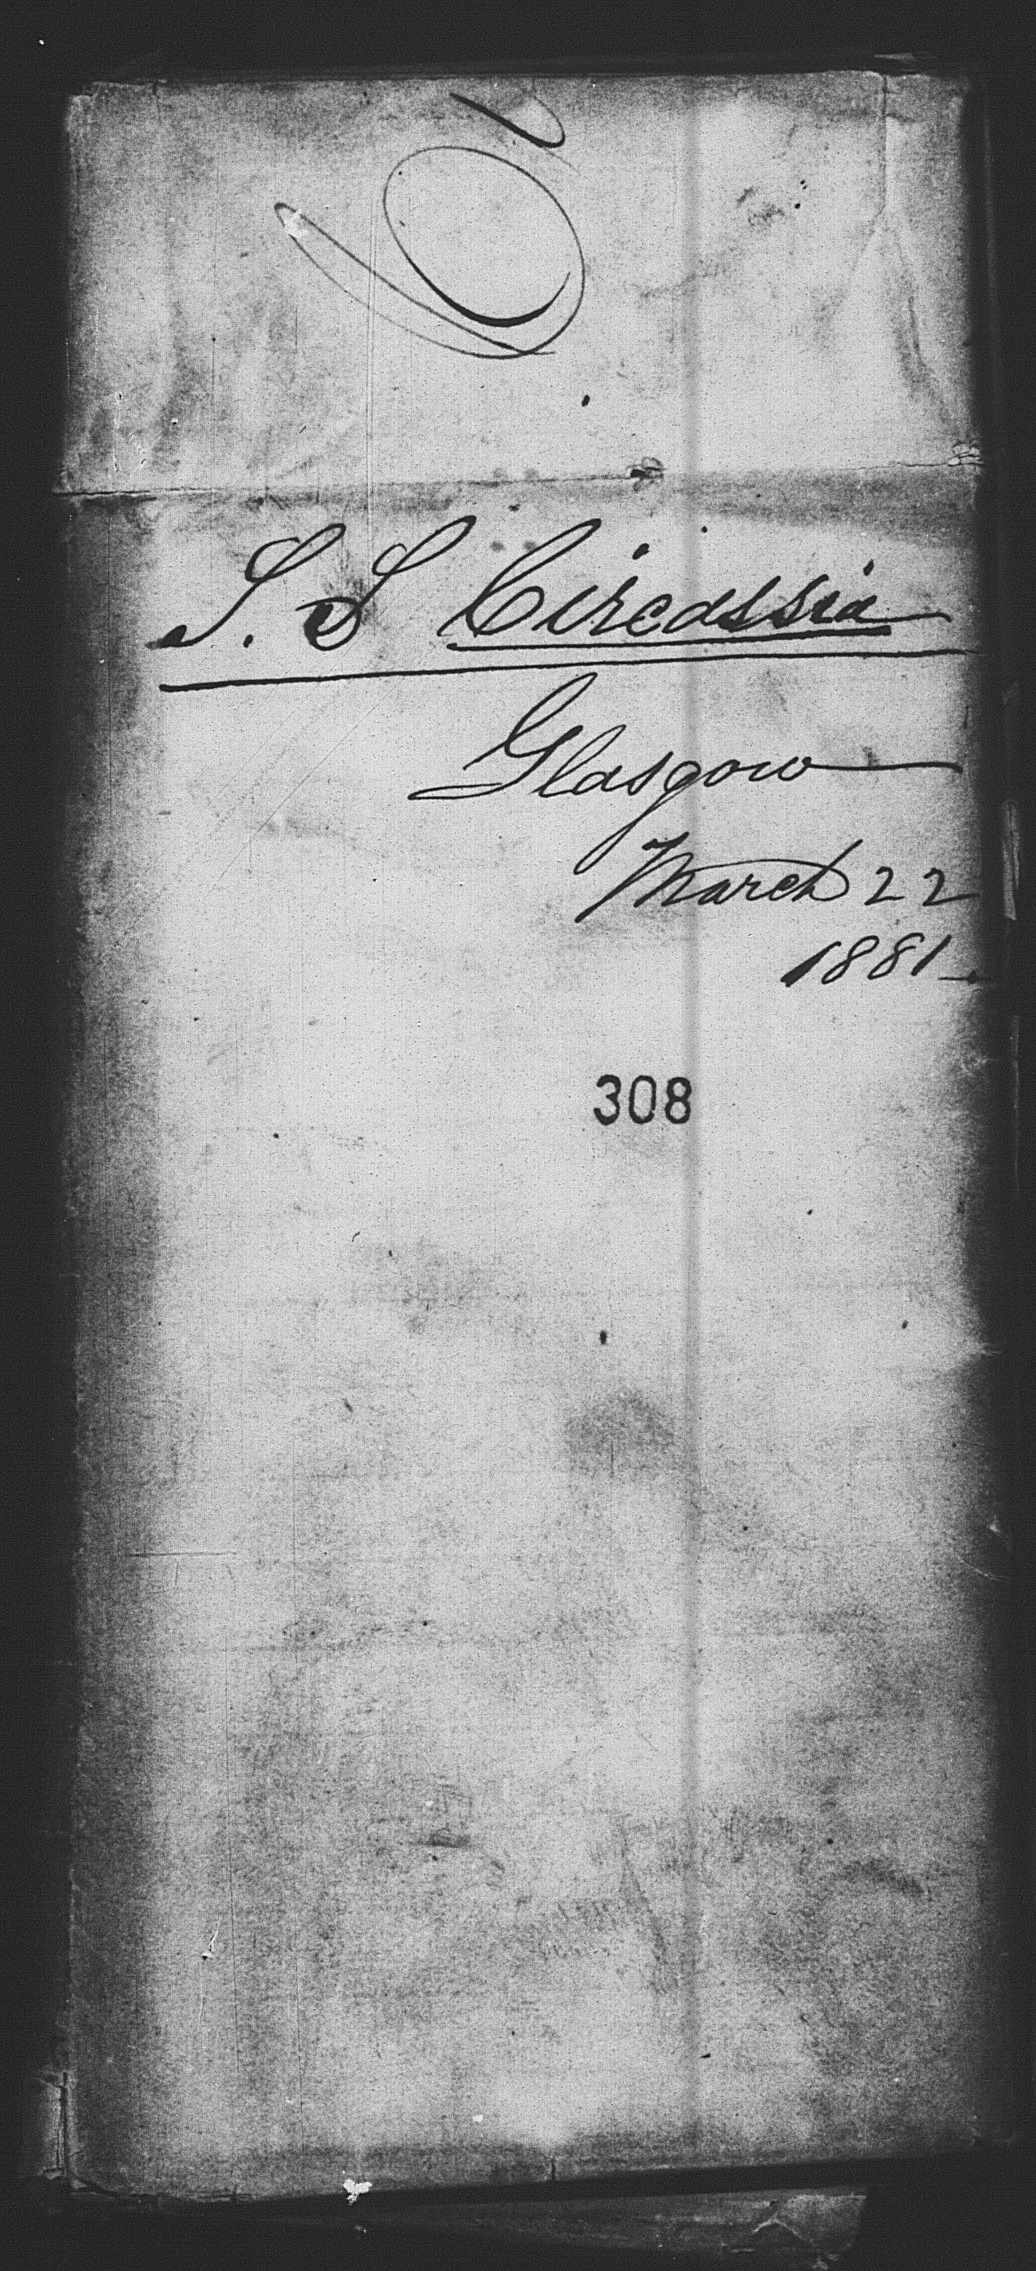 S. S Circassia
Glasgow
March 22
1881
308